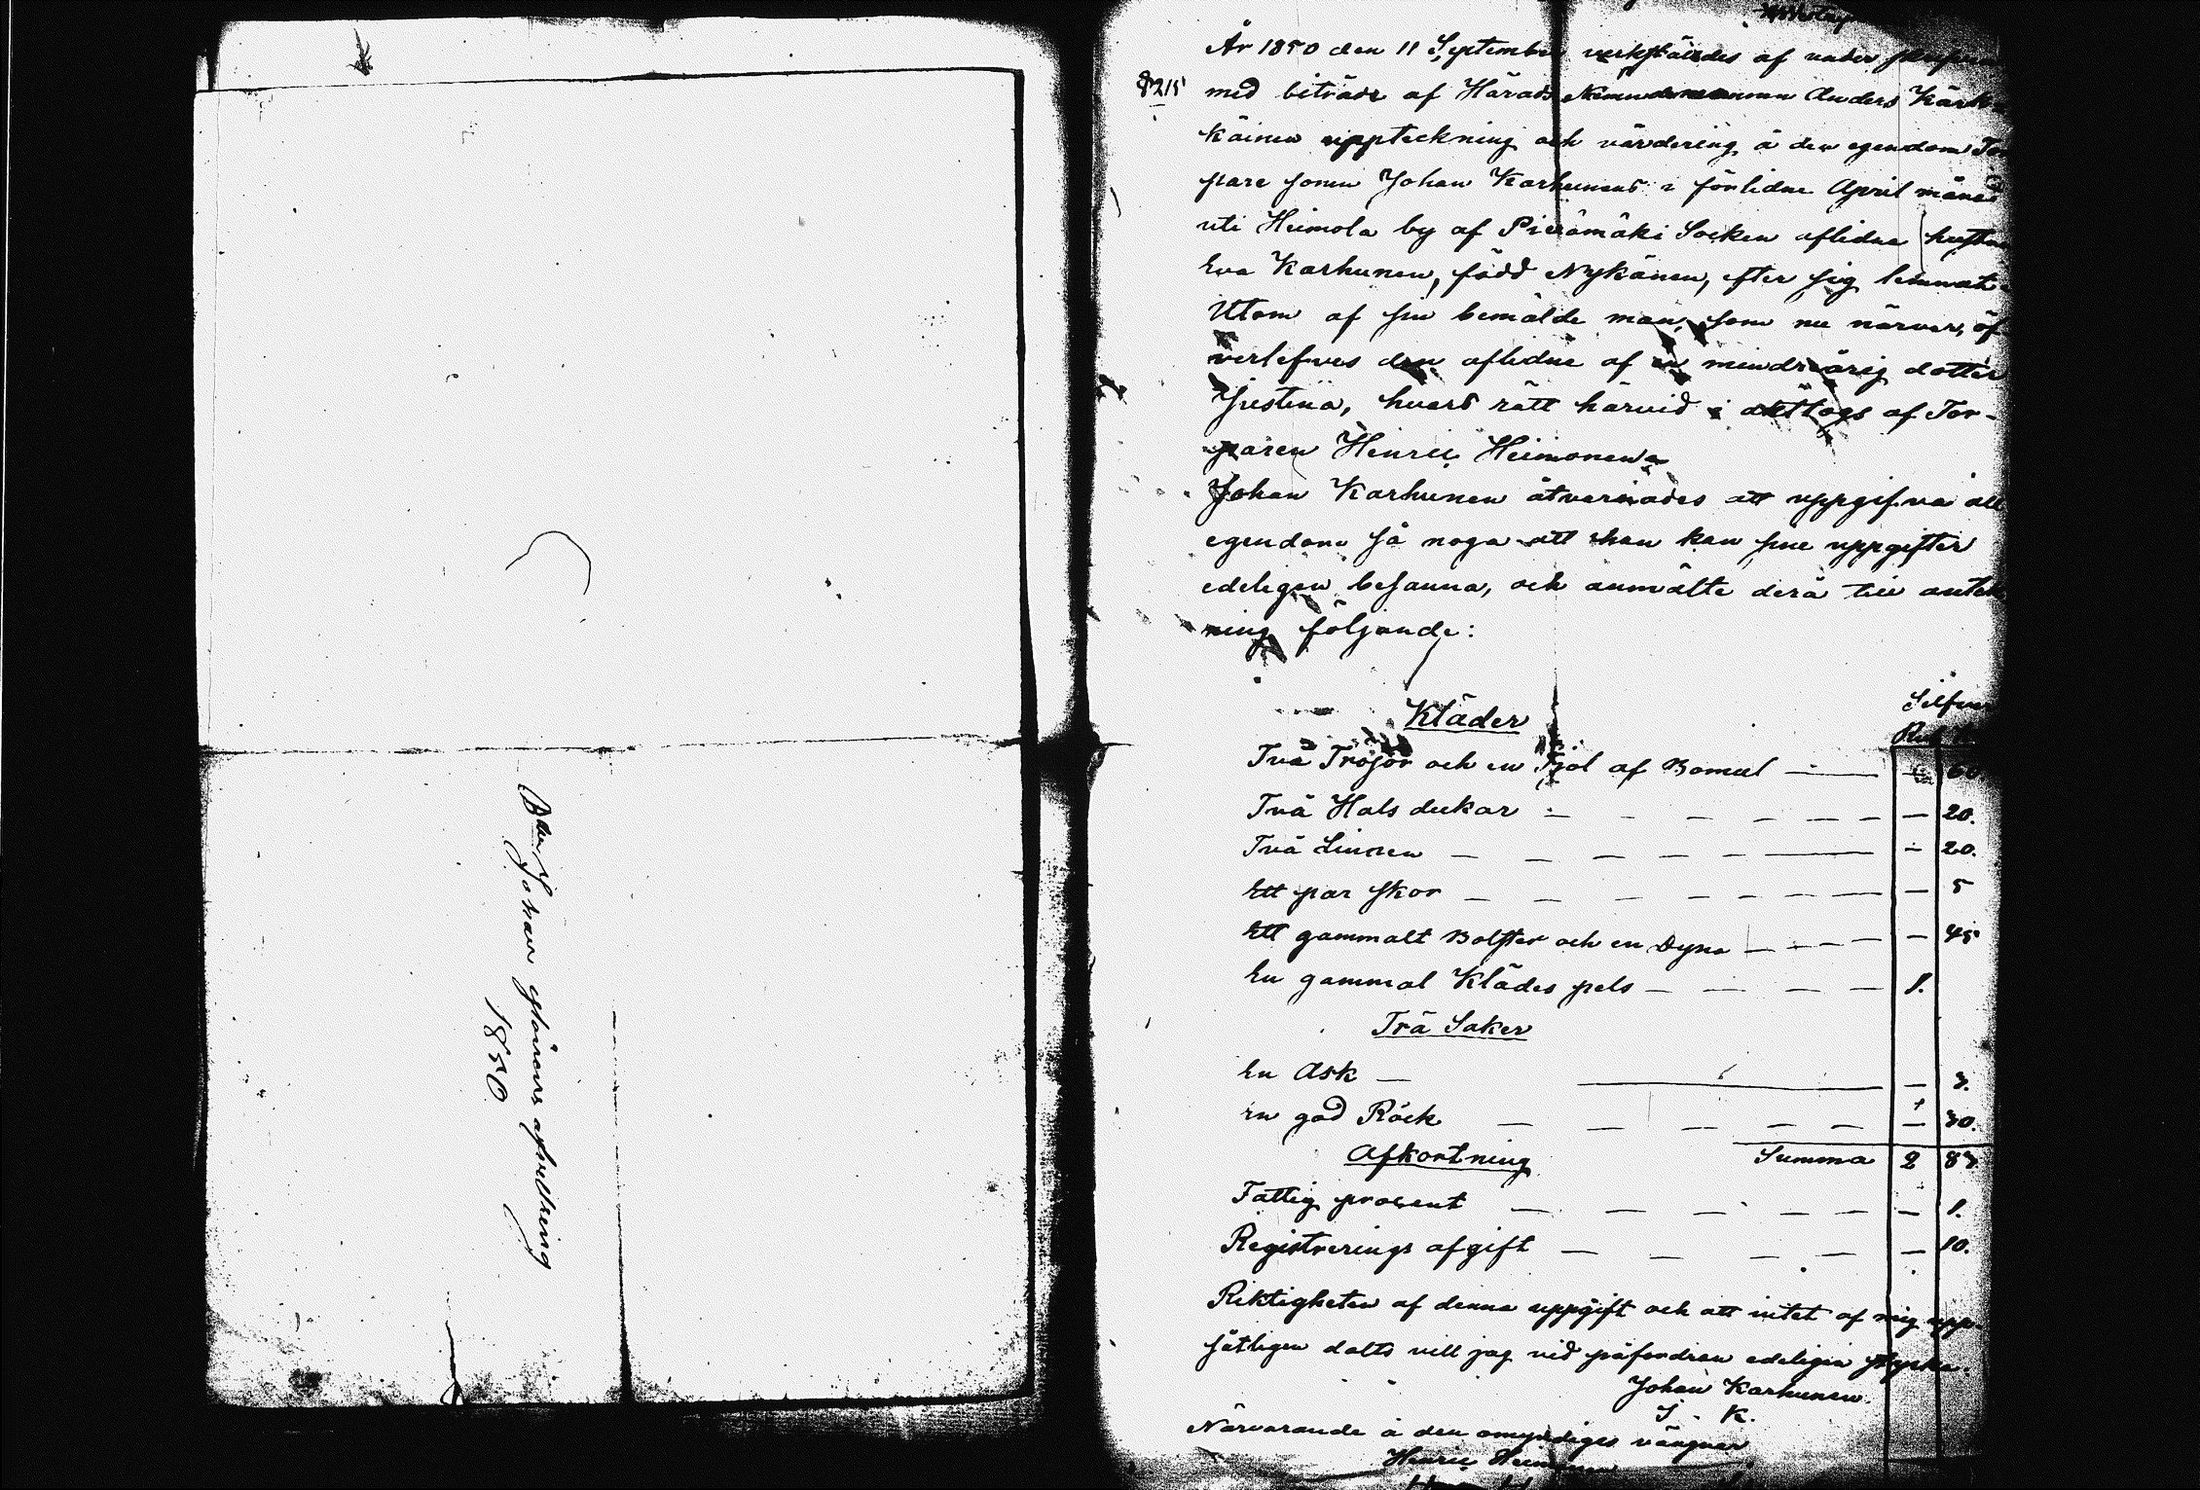 1850
8215
År 1850 den 11 September verkställdes af under
med biträde af Härads Nämndemannen Anders Kärk
käinen uppteckning och värdering å den egendom Tor
pare sonen Johan Karhunens i förlidne April månad
uti Heimola by af Pielämäki Socken aflidne hustru
Eva Karhunen, född Nykänen, efter sig lemnat.
Utom af sin bemälde man, som nu närvar, öf
verlefves den aflidne af en minderårig dotter
Justina, hvars rätt härvid i akttogs af Tor-
paren Henric Heimonen
Johan Karhunen åtvarnades att uppgifva all
egendom så noga att han kan sine uppgifter
edeligen besanna, och anmälte derå till anteck
ning följande:
Kläder
Silfver
Rub
Två Tröjor och en Kjol af Bomul — — 60
Två Hals dukar — 20.
Två Linnen — 20.
Ett par skor — 5
Ett gammalt Bolster och en Dyna — 45
En gammal Klädes pels — 1.
Trä Saker
En Ask — 3.
en god Röck — 30.
Afkortning Summa 2 83
Fattig procent — 1.
Registrerings afgift — 10.
Riktigheten af denna uppgift och att intet af mig upp
såtligen dolts vill jag vid påfordran edeligen styrka.
Johan Karhunen
J. K.
Närvarande å den omyndiges vägnar
Henric Heimonen